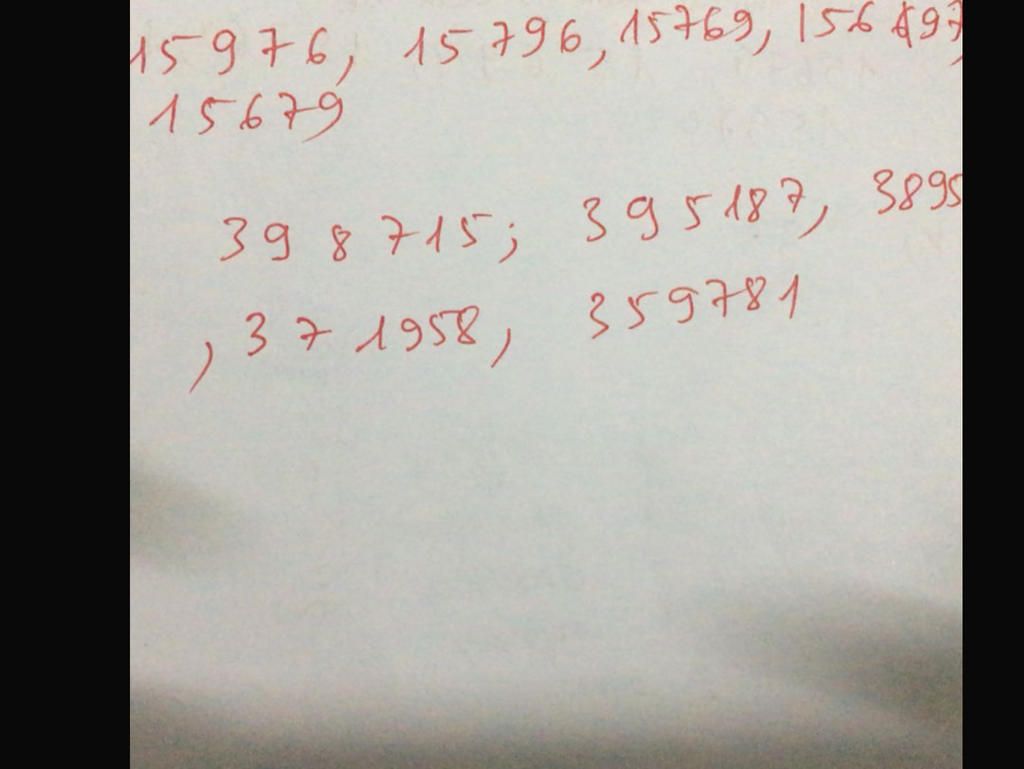 15976, 15796, 15769,
15679
398715; 395187, 3895
, 371958, 359781